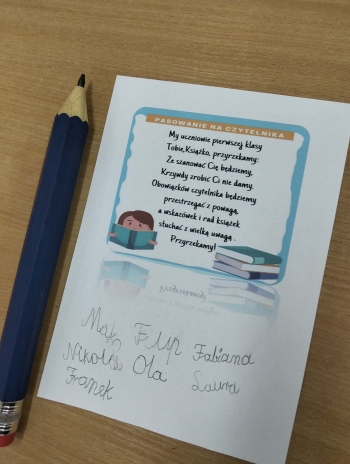 PASOWANIE NA CZYTELNIKA
My uczniowie pierwszej klasy
Tobie,Książko, przyrzekamy:
Że szanować Cię będziemy,
Krzywdy zrobić Ci nie damy.
Obowiązków czytelnika będziemy
przestrzegać z powagą,
a wskazówek i rad książek
słuchać z wielką uwagą.
Przyrzekamy!
Maja Filip Fabiana
Nikola Ola Laura
Franek